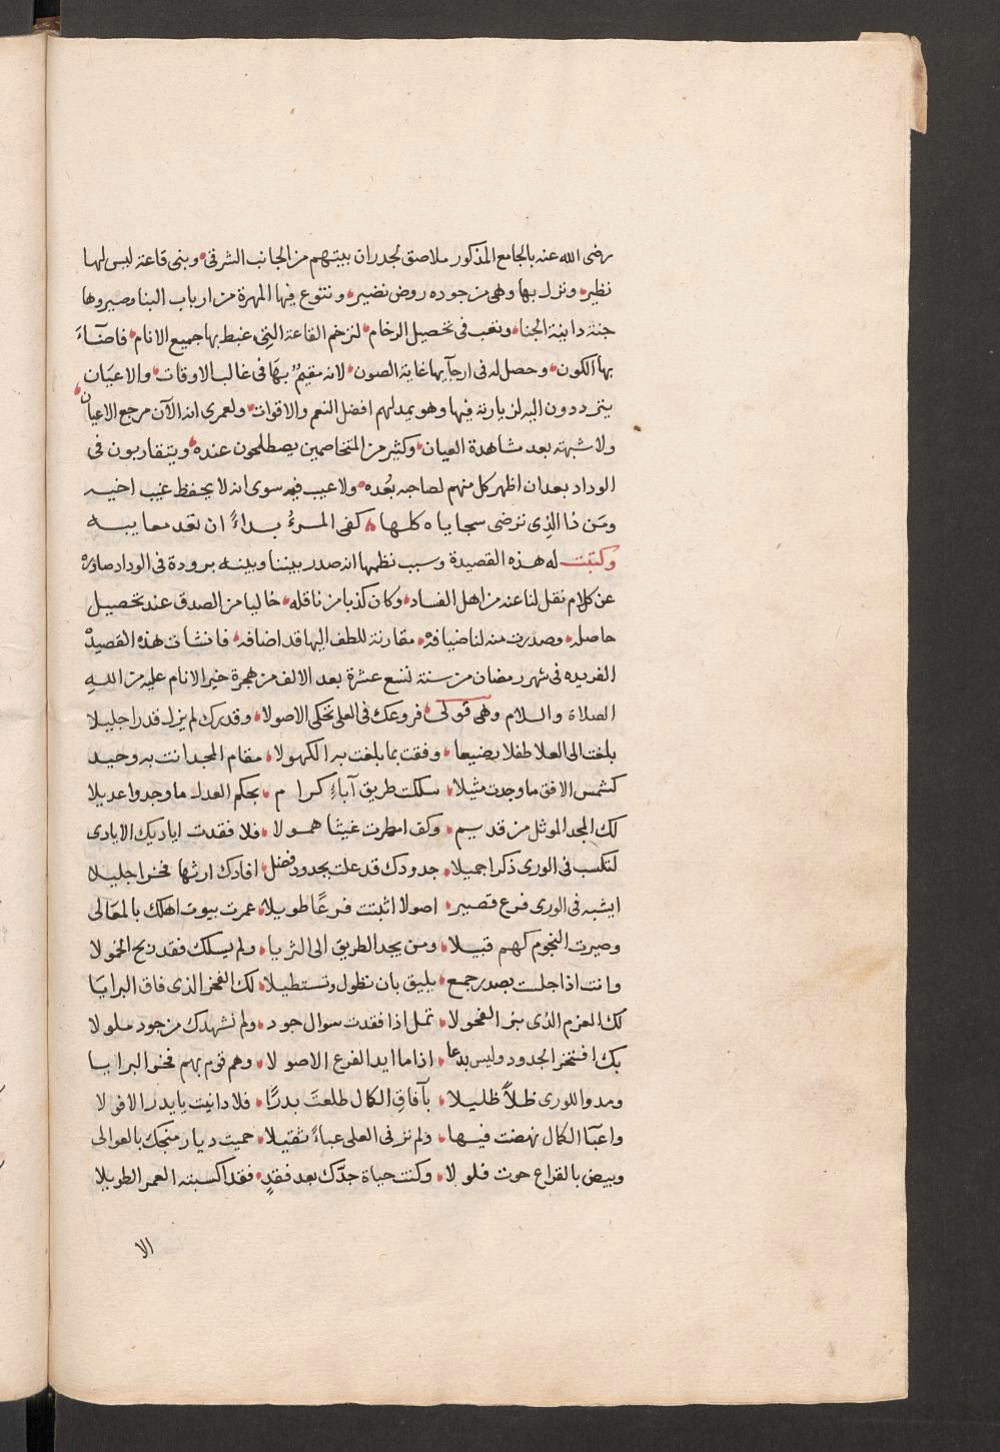 رضى الله عنه بالجامع المذكور ملاصق لجدران بيتهم من الجانب الشرقى وبنى قاعة ليس لها
نظير ونزل بها وهى من جوده روض نضير وتنوع فيها المهرة من ارباب البنا وصيروها
جنة دانية الجنا وتعب فى تحصيل الرخام لترخم القاعة التى غبط بها جميع الانام فاضآء
بها الكون وحصل له فى ارجآيها غاية الصون لانه مقيم بها فى غالب الاوقات والاعيان
يترددون اليه لزيارته فيها وهو يمد لهم افضل النعم والاقوات ولعمرى انه الآن مرجع الاعيان
ولا شبهة بعد مشاهدة العيان وكثير من المتخاصمين يصطلحون عنده ويتقاربون فى
الوداد بعد ان اظهر كل منهم لصاحبه بُعده ولا عيب فيه سوى انه لا يحفظ غيب اخيه
ومَن ذا الذى ترضى سجاياه كلها كفى المرءُ بداءً ان تعد معايبه
وكتبت له هذه القصيدة وسبب نظمها انه صدر بيننا وبينه برودة فى الوداد صادرة
عن كلام نقل لنا عنه من اهل الفساد وكان كذبا من ناقله خاليا من الصدق عند تحصيل
حاصله وصدرت منه لنا ضيافة مقارنة للطف اليها قد اضافه فانشات هذه القصيدة
الفريده فى شهر رمضان من سنة تسع عشرة بعد الالف من هجرة خير الانام عليه من الله
الصلاة والسلام وهى قولى فروعك فى العلى تحكى الاصولا وقدرك لم يزل قدرا جليلا
بلغت الى العلا طفلا رضيعا وفقت بما بلغت به الكهولا مقام المجد انت به وحيد
كشمس الافق ما وجدت مثيلا سلكت طريق آباءٍ كرام بحكم العدل ما وجدوا عديلا
لك المجد الموثل من قديم وكف امطرت غيثا همولا فلا فقدت اياديك الايادى
لتكسب فى الورى ذكرا جميلا جدودك قد علت بجدود فضل افادك ارثها فخرا جليلا
ايشبه فى الورى فرع قصير اصولا اثبتت فرعًا طويلا عمرت بيوت اهلك بالمعالى
وصيرت النجوم لهم قبيلا ومن يجد الطريق الى الثريا ولم يسلك فقد ربح الخمولا
وانت اذا جلست بصدر جمع يليق بان تطول وتستطيلا لك الفخر الذى فاق البرايا
لك العزم الذى بز الفحولا تمل اذا فقدت سوال جود ولم نشهدك من جود ملولا
بك افتخر الجدود وليس بدعا اذا ما ايد الفرع الاصولا وهم قوم بهم فخر البرايا
ومدوا للورى ظلاً ظليلا بآفاق الكمال طلعتَ بدرًا فلا دانيت يا بدر الافولا
واعبآ الكمال نهضت فيها ولم تر فى العلى عباءً ثقيلا حميت ديار منجك بالعوالى
وبيض بالقراع حوت فلولا وكنت حياة جدّك بعد فقدٍ فقد اكسبته العمر الطويلا
الا